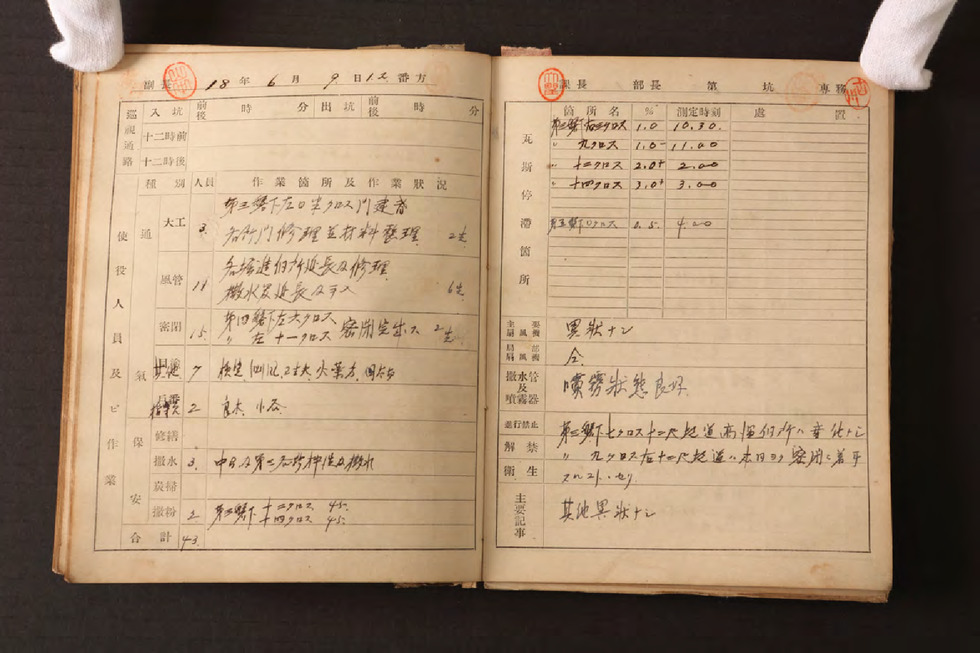 副長 18年6月9日12番方
巡視通路
入坑 前後 時 分 出坑 前後 時 分
十二時前
十二時後
使役人員及ビ作業
種別 人員 作業箇所及作業状况
通氣
大工 3. 第三盤下左0半クロス門建者
各所門修理並材料整理 2先
風管 18 各掘進個所延長及修理
撒水炭延長及手入 6先
密閉 15. 第四盤下左六クロス 密閉完出ス 2先
〃 左十一クロス
7
2
保安
修繕
撒水 3. 中目及第二各坑枠積及撒水
炭掃
撒粉 2 第三盤下 十二クロス 45.
十四クロス 45.
合計 43.
課長 部長 第 坑 専務
瓦斯停滞箇所
箇所名 % 測定時刻 處置
第三盤下右三クロス 1.0 10.30.
〃 九クロス 1.0 11.00
〃 十二クロス 2.0+ 2.00
〃 十四クロス 3.0+ 3.00
第五盤下0クロス 0.5. 4.20
主要扇風機 異狀ナシ
局部扇風機 仝
撒水管及噴霧器 噴霧狀態良好
進行禁止
解禁
衛生
第三盤下七クロス十二尺坑道高温個所ハ変化ナシ
〃 九クロス右十二尺坑道ハ本日ヨリ密閉ニ着手
主要記事 其他異狀ナシ